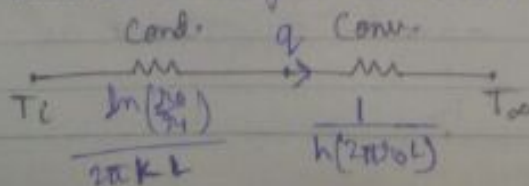 Cond. q Conv.
Ti T∞
ln(r0/r1) / 2πKL 1 / h(2πr0L)